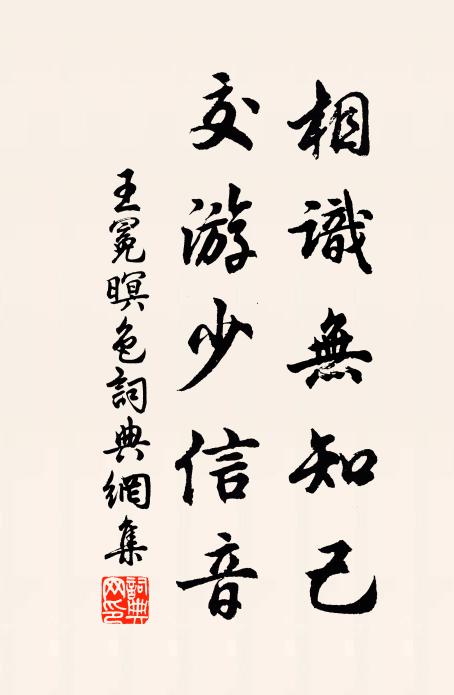 相識無知己
交游少信音
王冕暝色詞典網集
詞典網印